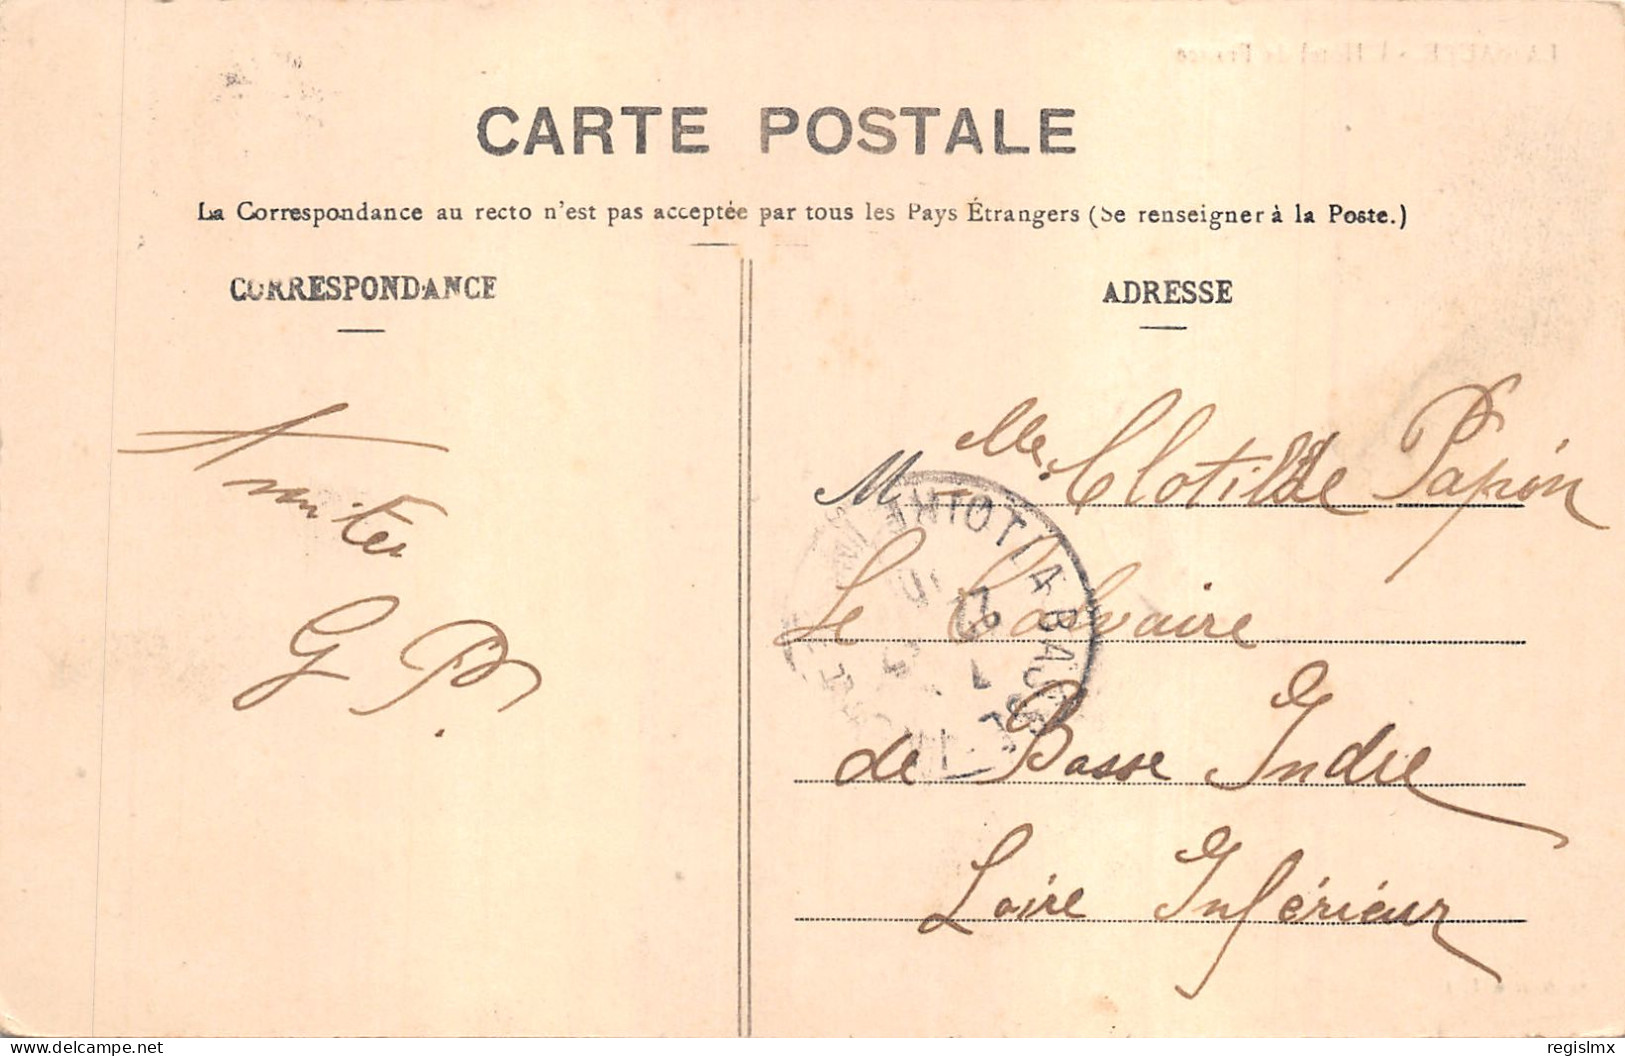 CARTE POSTALE
La Correspondance au recto n'est pas acceptée par tous les Pays Étrangers (Se renseigner à la Poste.)
CORRESPONDANCE
Amities
G P.
ADRESSE
M lle Clotilde Papin
Le Calvaire
de Basse Indre
Loire Inférieur
LA BASSE
22
delcampe.net
regislmx